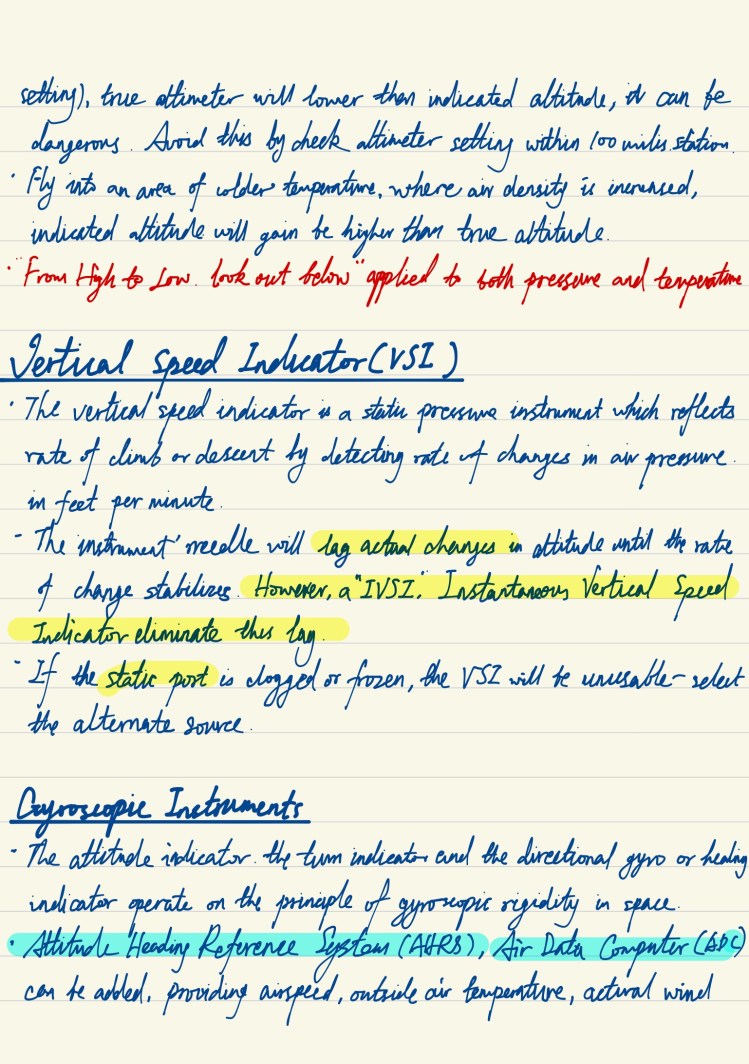 setting), true altimeter will lower then indicated altitude, it can be
dangerous. Avoid this by check altimeter setting within 100 milis station.
· Fly into an area of colder temperature, where air density is increased,
indicated altitude will gain be higher than true altitude.
· "From High to Low. look out below" applied to both pressure and temperature
Vertical Speed Indicator (VSI)
· The vertical speed indicator is a static pressure instrument which reflects
rate of climb or descent by detecting rate of changes in air pressure.
in feet per minute.
- The instrument' needle will lag actual changes in attitude until the rate
of change stabilizes. However, a "IVSI". Instantaneous Vertical Speed
Indicator eliminate this lag.
- If the static port is clogged or frozen, the VSI will be unusable - select
the alternate source.
Gyroscopic Instruments
- The attitude indicator. the turn indicator and the directional gyro or heading
indicator operate on the principle of gyroscopic rigidity in space.
· Attitude Heading Reference System (AHRS), Air Data Computer (ADC)
can be added, providing airspeed, outside air temperature, actural wind